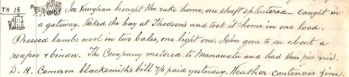 TH 13 Joe Vaughan brought the rake home, one shaft splintered caught in
a gateway. Raked the hay at Theodores and took it home in one load.
Pressed lambs wool in two bales, one light one. John gone to see about a
reaper & binder. The Company motored to and him put
D. H. Cameron blacksmiths bill 7/6 paid yesterday. Weather continues fine